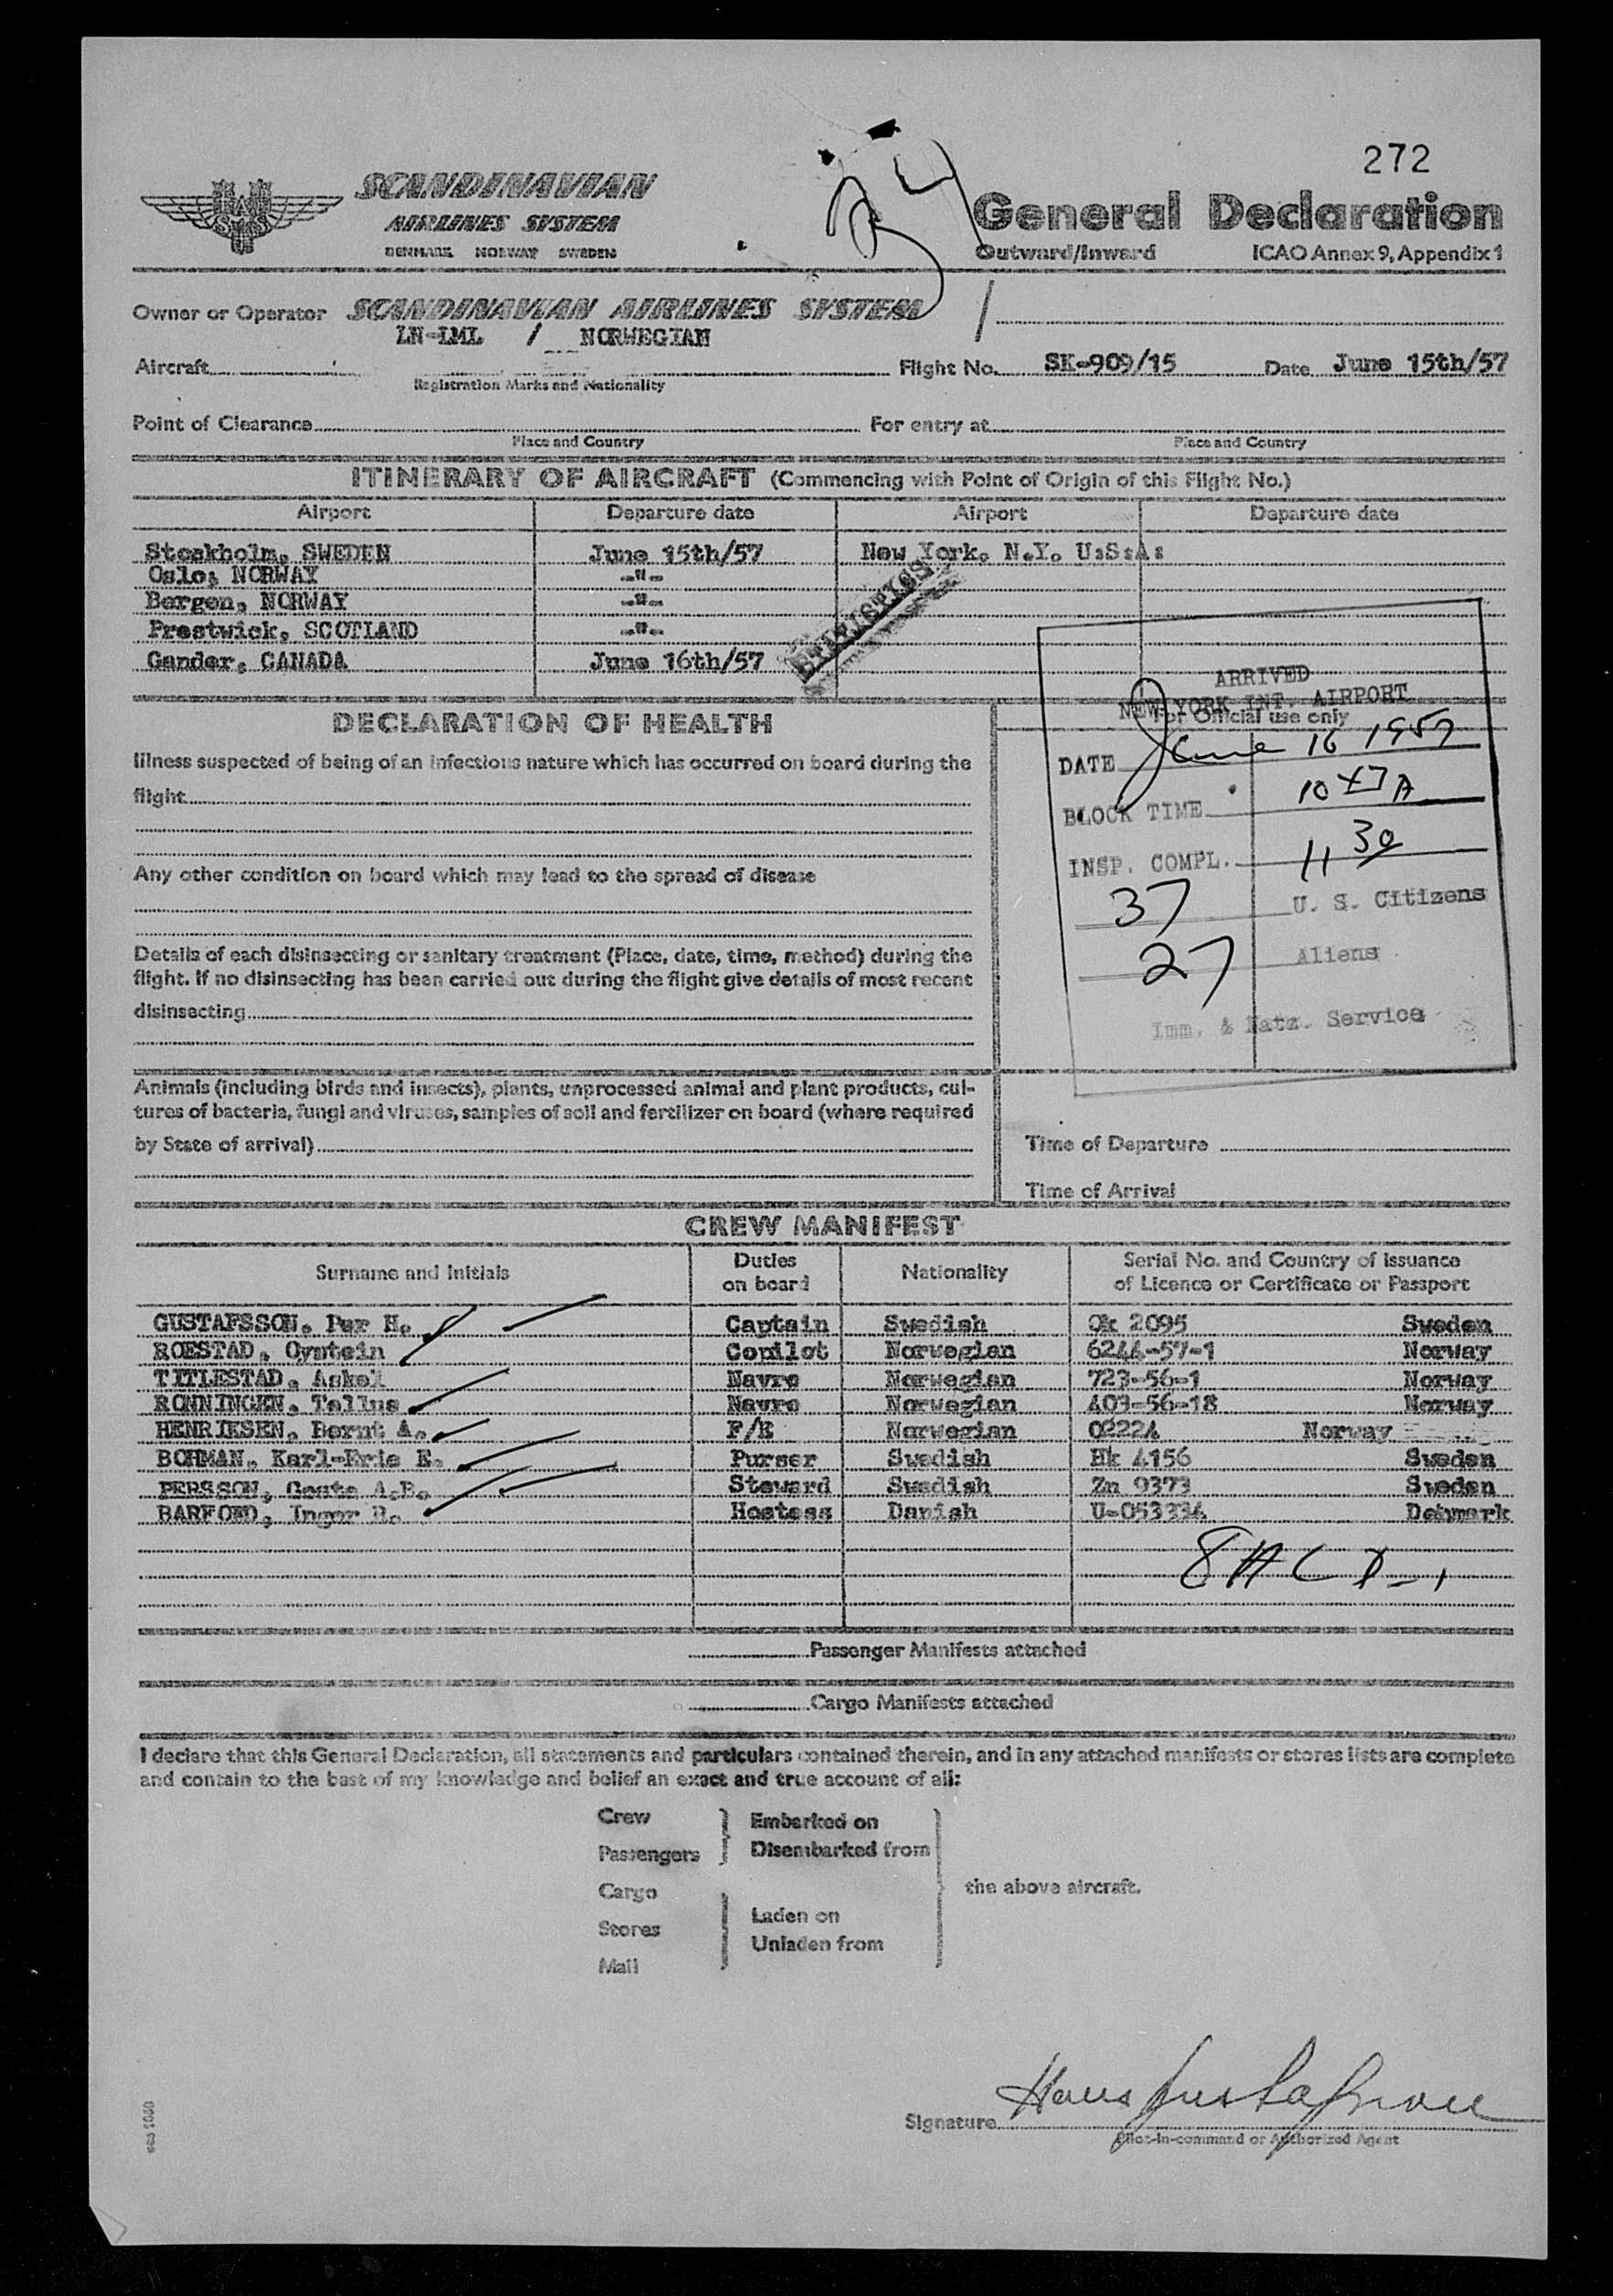 272
SCANDINAVIAN
AIRLINES SYSTEM
DENMARK NORWAY SWEDEN
General Declaration
Outward/Inward ICAO Annex 9, Appendix 1
Owner or Operator SCANDINAVIAN AIRLINES SYSTEM
LN-LML / NORWEGIAN
Aircraft Flight No. SK-909/15 Date June 15th/57
Registration Marks and Nationality
Point of Clearance For entry at
Place and Country Place and Country
ITINERARY OF AIRCRAFT (Commencing with Point of Origin of this Flight No.)
Airport Departure date Airport Departure date
Stockholm, SWEDEN June 15th/57 New York, N.Y. U:S:A:
Oslo, NORWAY -"-
Bergen, NORWAY -"-
Prestwick, SCOTLAND -"-
Gander, CANADA June 16th/57
STATISTICS
DECLARATION OF HEALTH
For Official use only
ARRIVED
NEW YORK INT. AIRPORT
DATE June 16 1957
BLOCK TIME A
INSP. COMPL. 11 30
37 U. S. Citizens
27 Aliens
Imm. & Natz. Service
Illness suspected of being of an infectious nature which has occurred on board during the
flight
Any other condition on board which may lead to the spread of disease
Details of each disinsecting or sanitary treatment (Place, date, time, method) during the
flight. If no disinsecting has been carried out during the flight give details of most recent
disinsecting
Animals (including birds and insects), plants, unprocessed animal and plant products, cul-
tures of bacteria, fungi and viruses, samples of soil and fertilizer on board (where required
by State of arrival)
Time of Departure
Time of Arrival
CREW MANIFEST
Surname and Initials Duties on board Nationality Serial No. and Country of Issuance of Licence or Certificate or Passport
GUSTAFSSON, Per H. Captain Swedish Ok 2095 Sweden
ROESTAD, Oystein Copilot Norwegian 6244-57-1 Norway
TITLESTAD, Askel Navro Norwegian 723-56-1 Norway
RONNINGEN, Tellus Navro Norwegian 403-56-18 Norway
HENRIKSEN, Bernt A. F/E Norwegian 02224 Norway
BOHMAN, Karl-Eric E. Purser Swedish Hk 4156 Sweden
PERSSON, Goste A.B. Steward Swedish Zn 9373 Sweden
BARFOED, Inger R. Hostess Danish U-053334 Denmark
Passenger Manifests attached
Cargo Manifests attached
I declare that this General Declaration, all statements and particulars contained therein, and in any attached manifests or stores lists are complete
and contain to the best of my knowledge and belief an exact and true account of all:
Crew
Passengers
Cargo
Stores
Mail
Embarked on
Disembarked from
Laden on
Unladen from
the above aircraft.
Signature Hans Gustafsson
Pilot-in-command or Authorized Agent